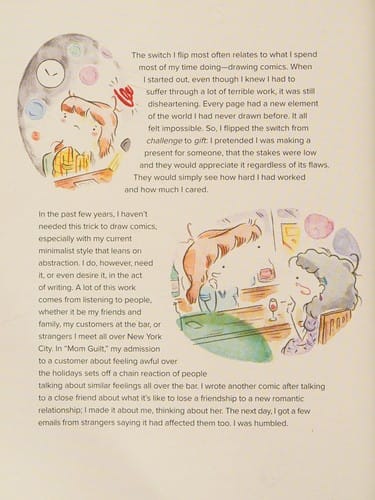 The switch I flip most often relates to what I spend
most of my time doing—drawing comics. When
I started out, even though I knew I had to
suffer through a lot of terrible work, it was still
disheartening. Every page had a new element
of the world I had never drawn before. It all
felt impossible. So, I flipped the switch from
challenge to gift: I pretended I was making a
present for someone, that the stakes were low
and they would appreciate it regardless of its flaws.
They would simply see how hard I had worked
and how much I cared.
In the past few years, I haven't
needed this trick to draw comics,
especially with my current
minimalist style that leans on
abstraction. I do, however, need
it, or even desire it, in the act
of writing. A lot of this work
comes from listening to people,
whether it be my friends and
family, my customers at the bar, or
strangers I meet all over New York
City. In “Mom Guilt,” my admission
to a customer about feeling awful over
the holidays sets off a chain reaction of people
talking about similar feelings all over the bar. I wrote another comic after talking
to a close friend about what it's like to lose a friendship to a new romantic
relationship; I made it about me, thinking about her. The next day, I got a few
emails from strangers saying it had affected them too. I was humbled.